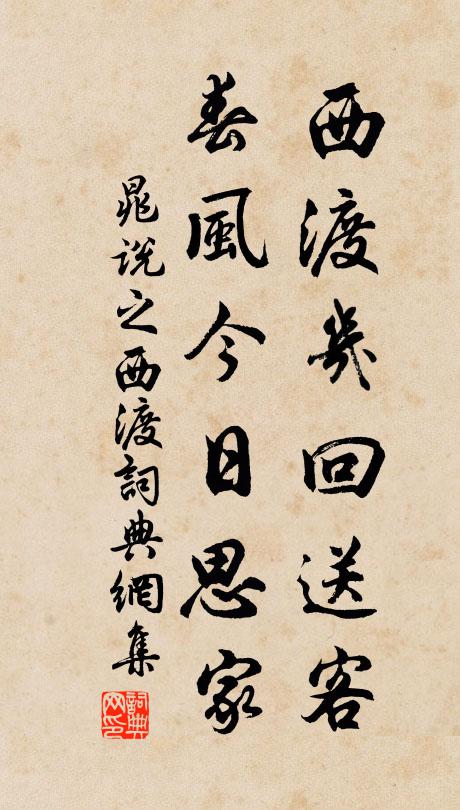 西渡幾回送客
春風今日思家
晁說之西渡詞典網集
詞典网印